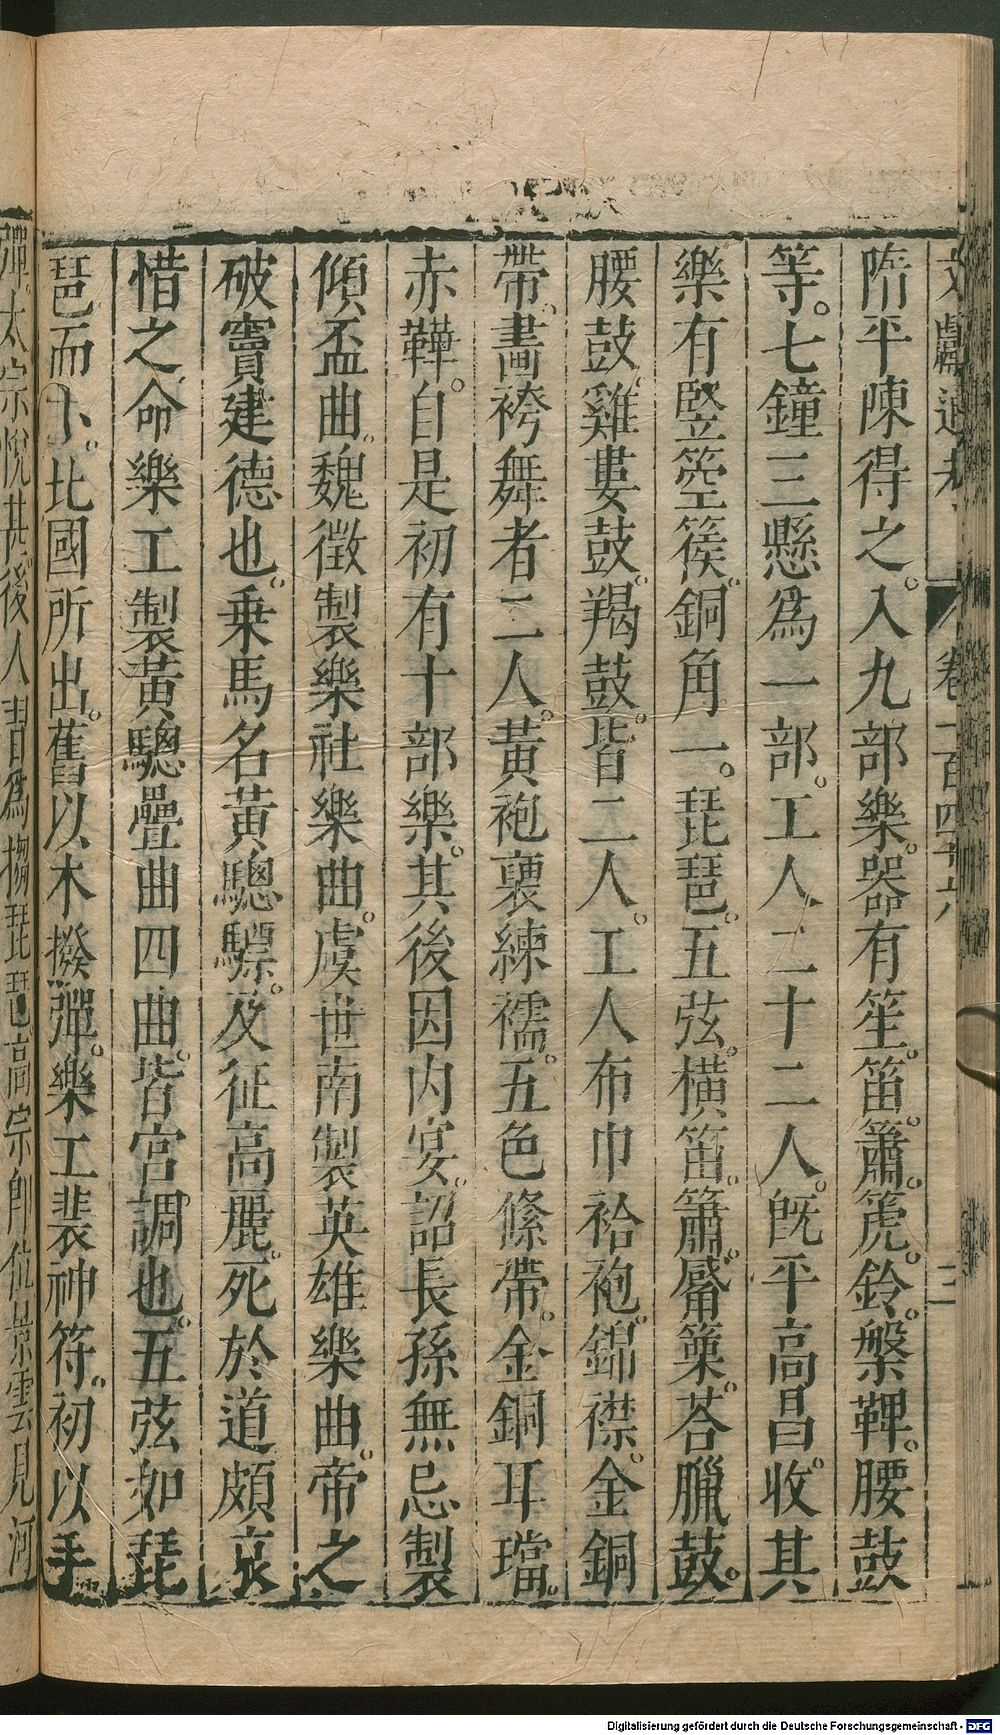 文獻通考 卷一百四十六 三
隋平陳得之。入九部樂。器有笙。笛。簫。箎。鈴。槃鞞。腰鼓
等。七鐘三懸爲一部。工人二十二人。旣平高昌。收其
樂有竪箜篌。銅角一。琵琶。五弦。橫笛。簫。觱篥。荅臘鼓。
腰鼓。雞婁鼓。羯鼓。皆二人。工人布巾袷袍。錦襟。金銅
帶。畫袴舞者二人。黃袍褏練襦。五色絛帶。金銅耳璫。
赤鞾。自是初有十部樂。其後因內宴。詔長孫無忌製
傾盃曲。魏徵製樂社樂曲。虞世南製英雄樂曲。帝之
破竇建德也。乗馬名黃驄驃。及征高麗。死於道頗哀
惜之命樂工製黃驄疊曲四曲。皆宮調也。五弦如琵
琶而小。比國所出。舊以木撥彈。樂工裴神符。初以手
彈。太宗恱甚後人習爲搊琵琶。高宗卽位景雲見河
Digitalisierung gefördert durch die Deutsche Forschungsgemeinschaft - DFG